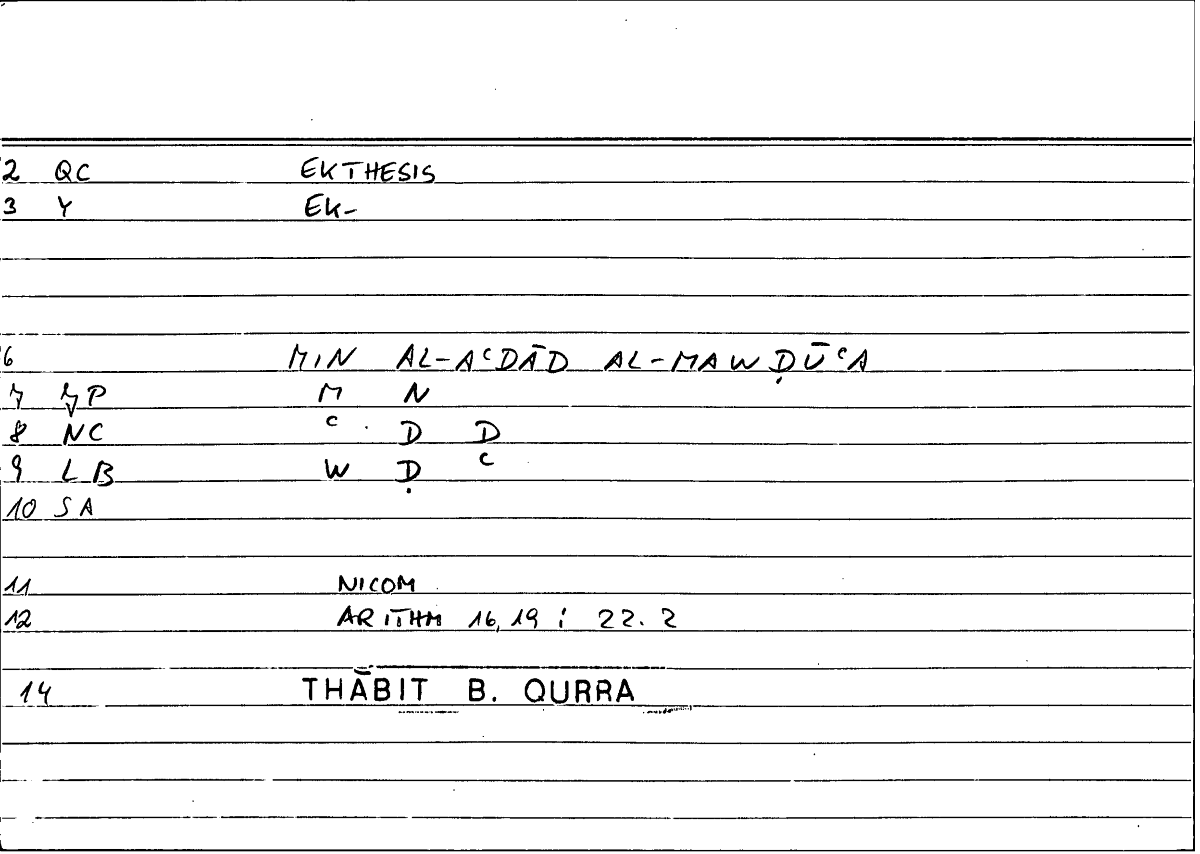 2 QC EKTHESIS
3 Y EK-
6 MIN AL-AᶜDĀD AL-MAWḌŪᶜA
7 M N
8 NC ᶜ D D
9 LB W Ḍ ᶜ
10 SA
11 NICOM
12 ARITHM 16,19 ; 22. 2
14 THĀBIT B. QURRA